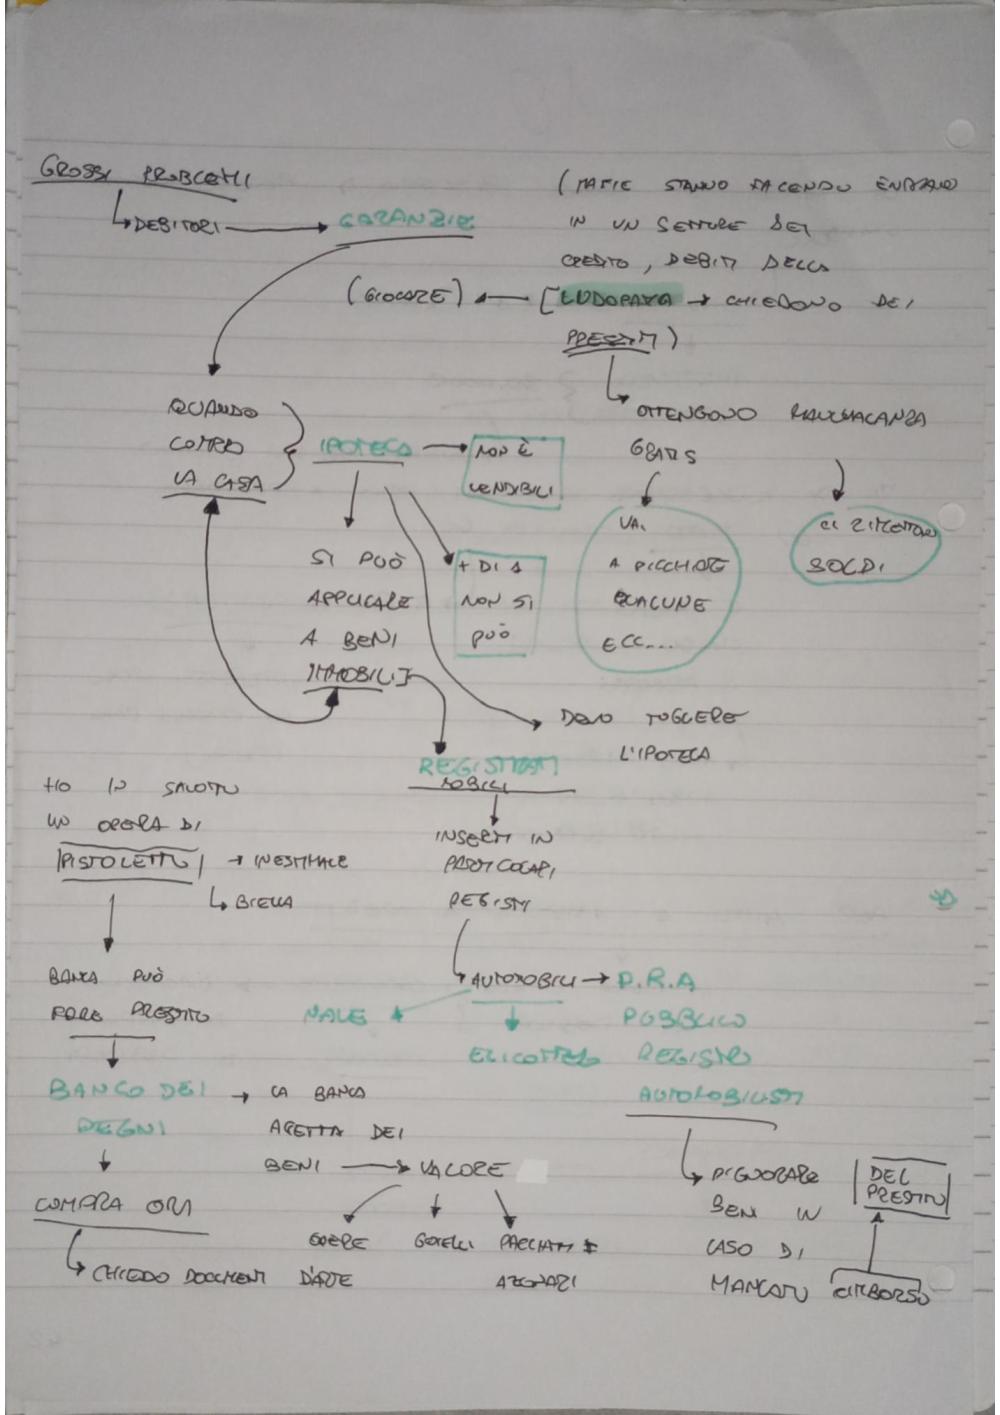 GROSSI PROBLEMI
DEBITORI → GARANZIE
(MAFIE STANNO FACENDO ENTRARE
IN UN SETTORE DEL
CREDITO, DEBITI DELLA
(GIOCARE) ← [LUDOPATIA → CHIEDONO DEI
PRESTITI)
OTTENGONO MANOVALANZA
GRATIS
QUANDO
COMPRO
LA CASA
IPOTECA → NON È
VENDIBILI
SI PUÒ
APPLICARE
A BENI
IMMOBILI
+ DI 1
NON SI
PUÒ
VAI
A PICCHIARE
QUALCUNE
ECC...
CI RIMETTONO
SOLDI
DEVO TOGLIERE
L'IPOTECA
REGISTRATI
MOBILI
INSERITI IN
PARTICOLARI
REGISTRI
AUTOMOBILI → P.R.A
PUBBLICO
REGISTRO
AUTOMOBILISTI
NALE
ELICOTTERO
PIGNORARE
BENI IN
CASO DI
MANCATO RIMBORSO
DEL
PRESTITO
HO IN SALOTTO
UN OPERA DI
PISTOLETTO → INESTIMALE
BIELLA
BANCA PUÒ
FARE PRESTITO
BANCO DEI
PEGNI
→ LA BANCA
ACETTA DEI
BENI → VALORE
OPERE
D'ARTE
GIOIELLI
PACCHETTI
AZIONARI
COMPRA ORI
CHIEDO DOCUMENTI